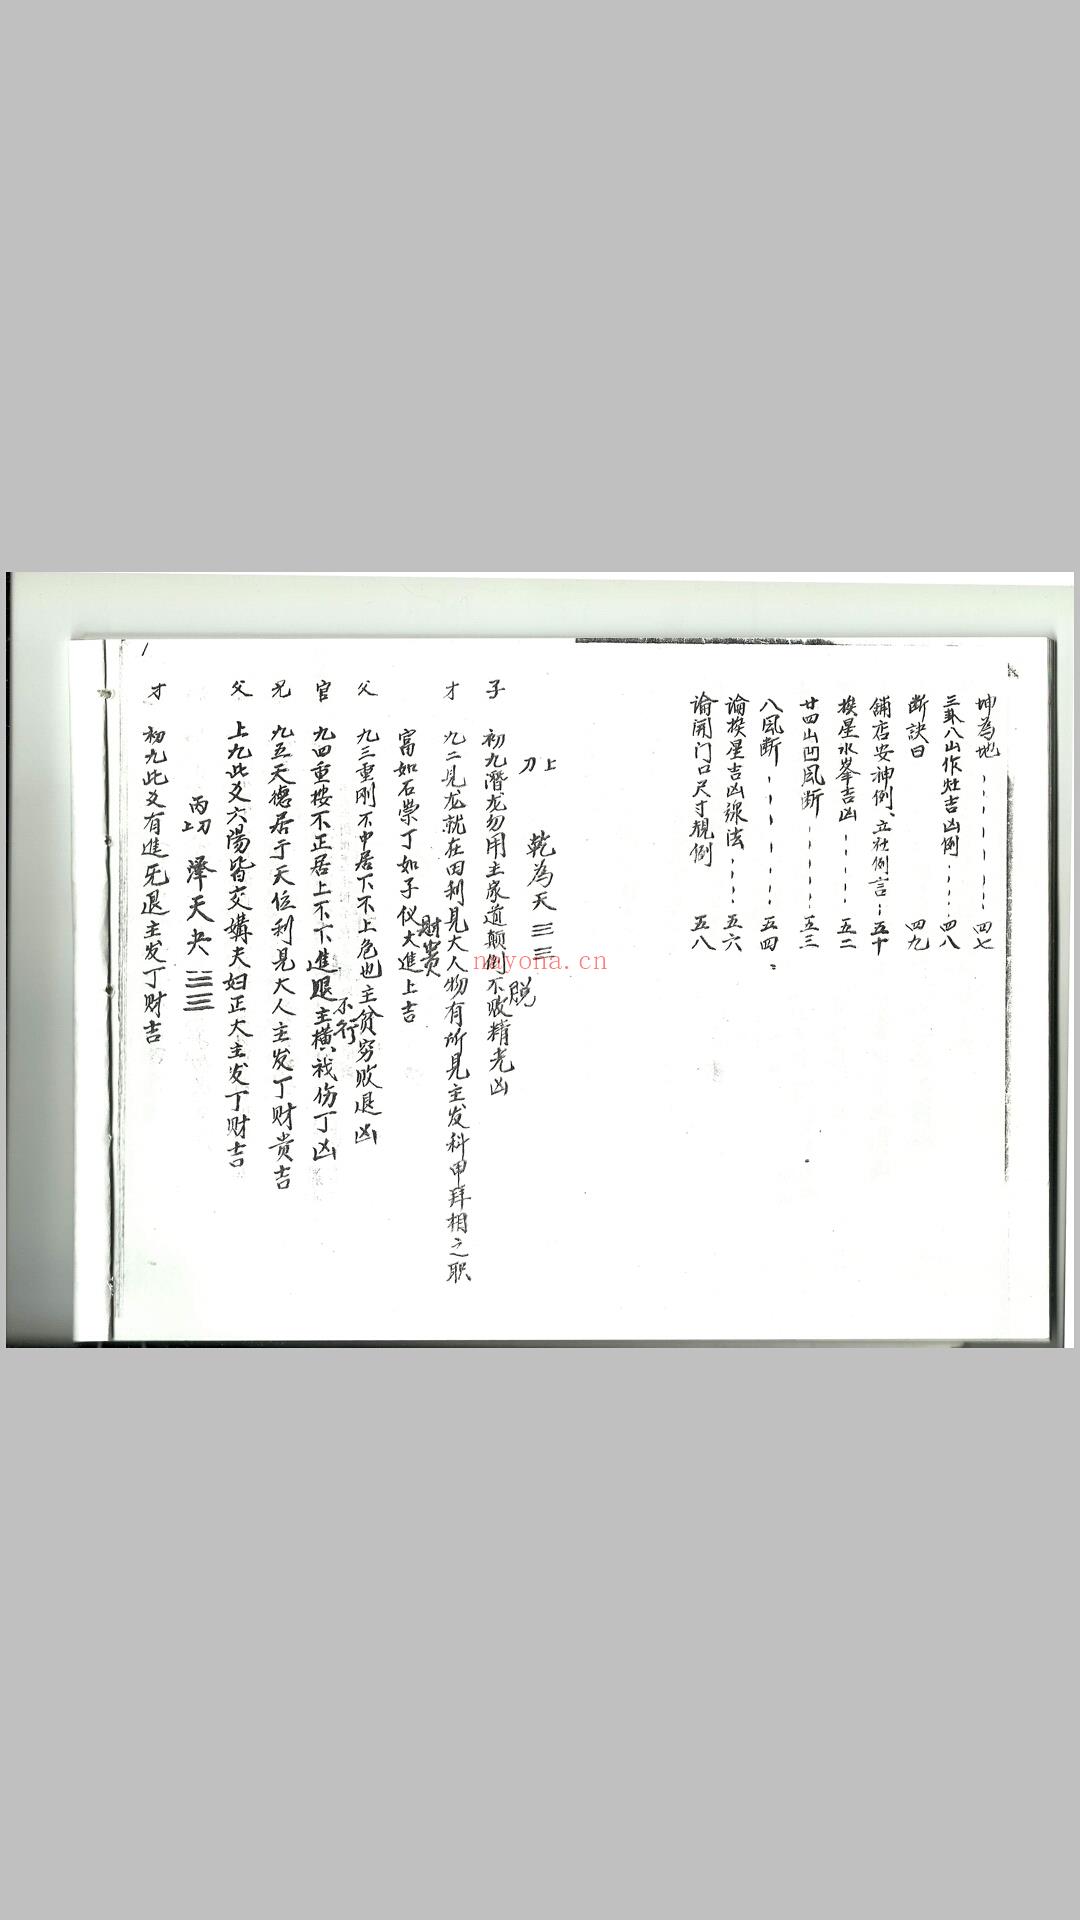 坤為地 四七
三卦八山作灶吉凶例 四八
断訣曰 四九
舖店安神例、立社例言 五十
挨星水峯吉凶 五二
廿四山凹風断 五三
八風断 五四
論挨星吉凶線法 五六
論開门口尺寸規例 五八
乾為天 ☰☰
子 初九潛龙勿用主家道顛倒不敗精光凶
才 九二見龙就在田利見大人物有所見主发科甲拜相之职
富如石崇丁如子仪大進上吉
財貴
父 九三重刚不中居下不上危也主貧穷败退凶
不行
官 九四重按不正居上不下進退主橫祸伤丁凶
兄 九五天德居于天位利見大人主发丁财贵吉
父 上九此爻六陽皆交媾夫妇正大主发丁财吉
澤天夬
才 初九此爻有進旡退主发丁财吉
1
nayona.cn